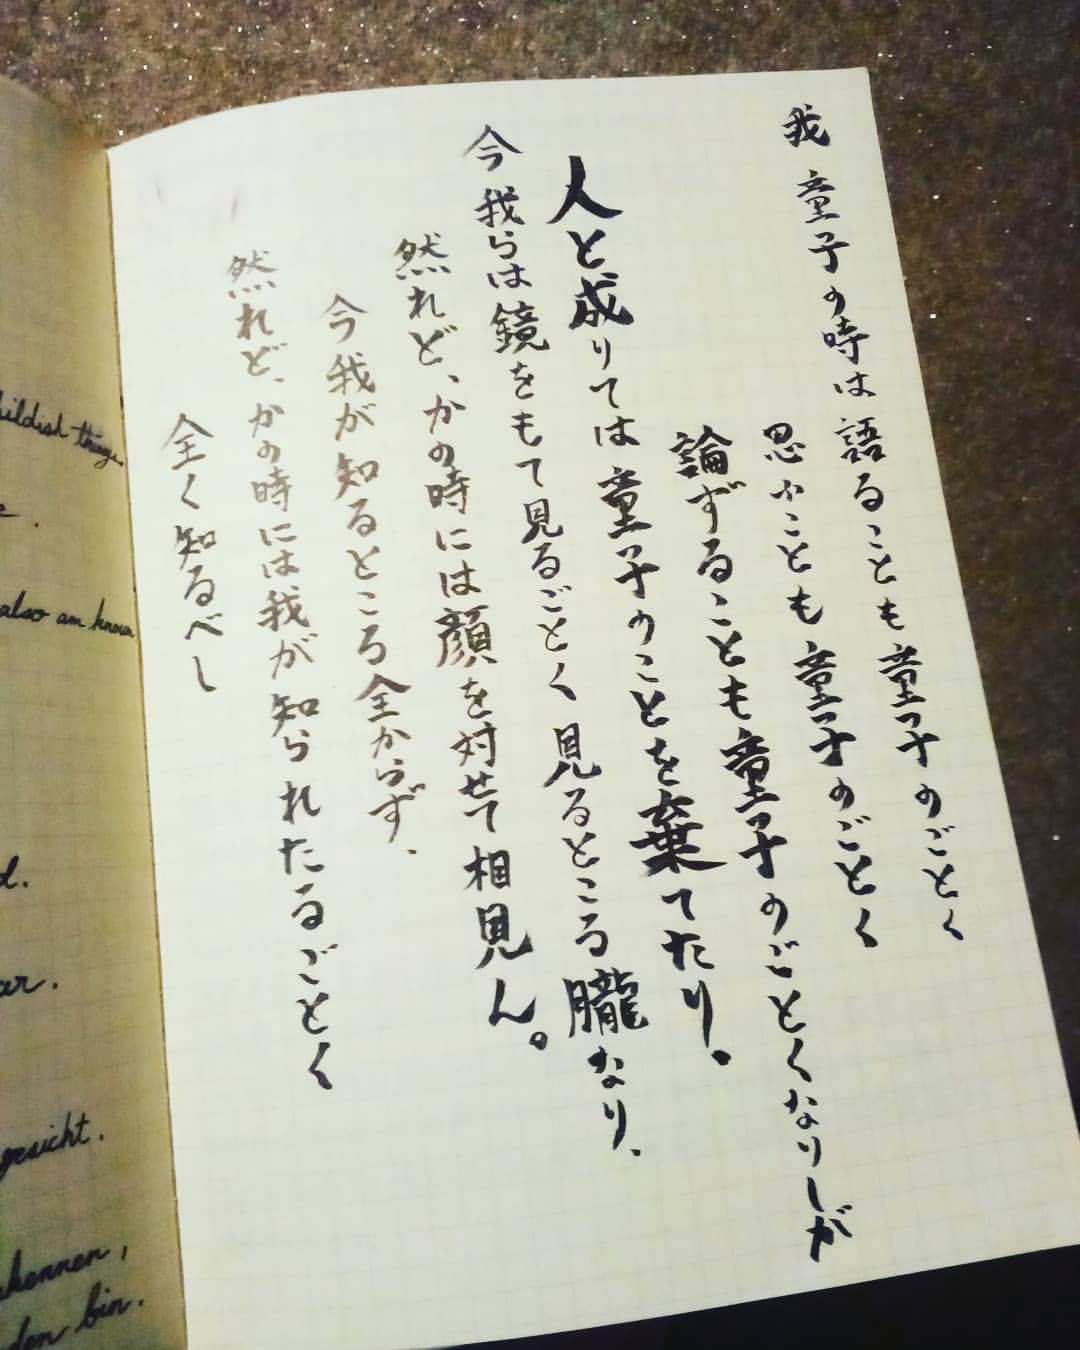 我童子の時は語ることも童子のごとく
思ふことも童子のごとく
論ずることも童子のごとくなりしが
人と成りては童子のことを棄てたり。
今我らは鏡をもて見るごとく見るところ朧なり、
然れど、かの時には顔を対せて相見ん。
今我が知るところ全からず、
然れど、かの時には我が知られたるごとく
全く知るべし
childish things.
also am known
gesicht.
den bin.